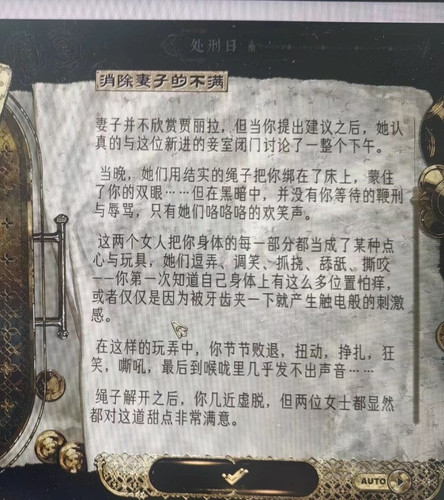 处刑日
消除妻子的不满
妻子并不欣赏贾丽拉，但当你提出建议之后，她认
真的与这位新进的妾室闭门讨论了一整个下午。
当晚，她们用结实的绳子把你绑在了床上，蒙住
了你的双眼……但在黑暗中，并没有你等待的鞭刑
与辱骂，只有她们咯咯咯的欢笑声。
这两个女人把你身体的每一部分都当成了某种点
心与玩具，她们逗弄、调笑、抓挠、舔舐、撕咬
——你第一次知道自己身体上有这么多位置怕痒，
或者仅仅是因为被牙齿夹一下就产生触电般的刺激
感。
在这样的玩弄中，你节节败退，扭动，挣扎，狂
笑，嘶吼，最后到喉咙里几乎发不出声音……
绳子解开之后，你几近虚脱，但两位女士都显然
都对这道甜点非常满意。
AUTO